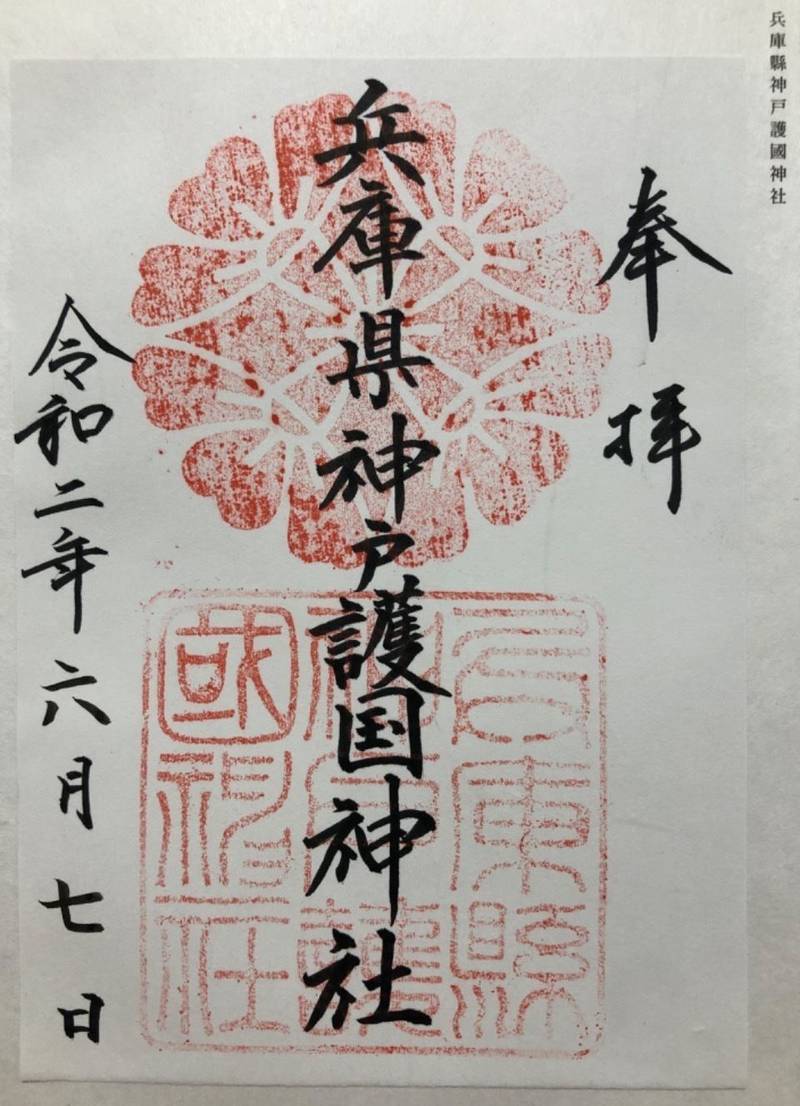 兵庫縣神戸護國神社
奉拝
兵庫県神戸護国神社
兵庫縣
神戸護
國神社
令和二年六月七日